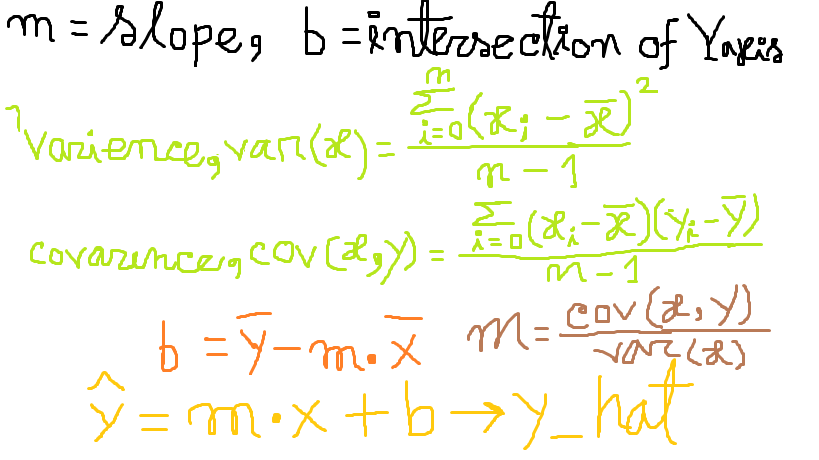 m = slope, b = intersection of Yaxis
Varience, var(x) = \frac{\sum_{i=0}^{n}(x_i - \overline{x})^2}{n-1}
covarience, cov(x,y) = \frac{\sum_{i=0}(x_i - \overline{x})(y_i - \overline{y})}{n-1}
b = \overline{y} - m \cdot \overline{x}
m = \frac{cov(x,y)}{var(x)}
\hat{y} = m \cdot x + b → y_hat